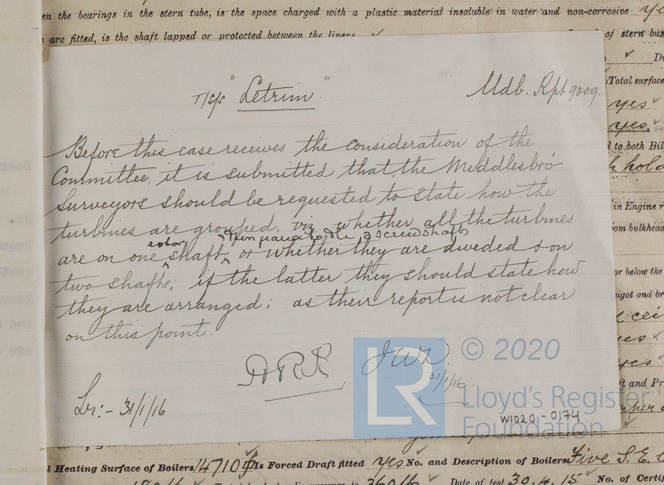 en the bearings in the stern tube, is the space charged with a plastic material insoluble in water and non-corrosive
are fitted, is the shaft lapped or protected between the liners
of stern bus
T/S/S "Letrim"
Mdb. Rpt 9009
Total surface
yes
yes
to both Bil
Before this case receives the consideration of the
Committee, it is submitted that the Middlesbro'
Surveyors should be requested to state how the
turbines are grouped, viz whether all the turbines
are on one shaft, or whether they are divided & on
two shafts; if the latter they should state how
they are arranged; as their report is not clear
on this point.
in Engine r
om bulkhead
or below the
igot and br
yes
yes
t and Pr
ARR JWD
31/1/16
Lr:- 31/1/16
© 2020
LR
Lloyd's Register
Foundation
W1020-0174
Heating Surface of Boilers 4710 Is Forced Draft fitted yes No. and Description of Boilers Five S.E.
Date of test 30.4.15 No. of Certi